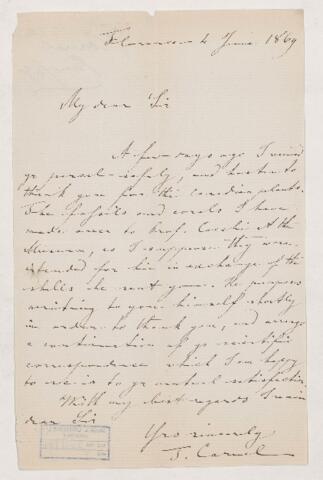 Florence 4 June 1869
My dear Sir
A few days ago I received
yr parcel safely, and hasten to
thank you for the canadian plants.
The fossils and corals I have
made over to Prof. at the
Museum, as I suppose they were
intended for him in exchange of the
shells he sent you. He purposes
writing to you himself shortly
in order to thank you, and arrange
a continuation of yr scientific
correspondence which I am happy
to see is to yr mutual satisfaction
With my best regards I remain
dear Sir
Yrs sincerely
T. Caruel